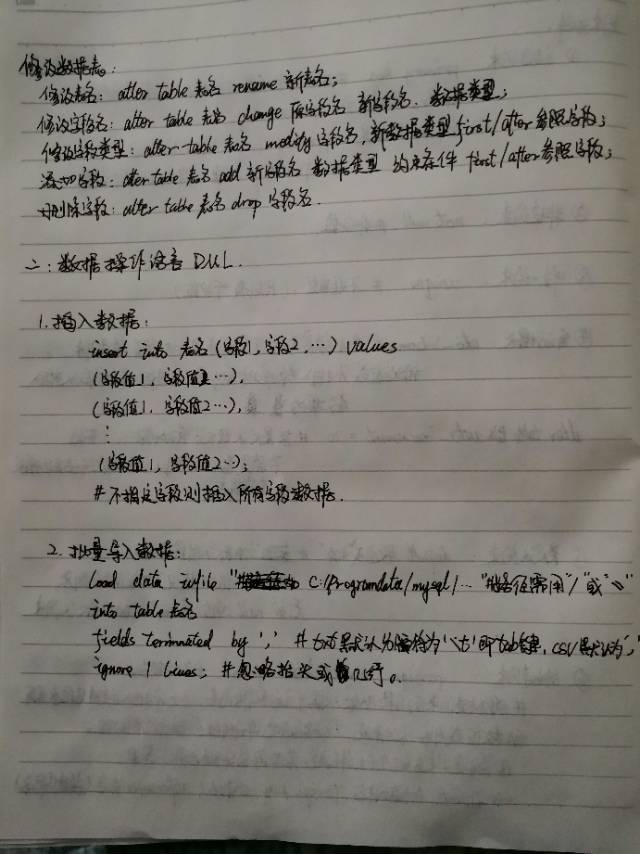 修改数据表:
修改表名: alter table 表名 rename 新表名;
修改字段名: alter table 表名 change 原字段名 新字段名 数据类型;
修改字段类型: alter table 表名 modify 字段名 新数据类型 first/after 参照字段;
添加字段: alter table 表名 add 新字段名 数据类型 约束条件 first/after 参照字段;
删除字段: alter table 表名 drop 字段名.
二: 数据操作语言 DML.
1. 插入数据:
insert into 表名 (字段1, 字段2, …) values
(字段值1, 字段值2…),
(字段值1, 字段值2…),
⋮
(字段值1, 字段值2…);
# 不指定字段则插入所有字段数据.
2. 批量导入数据:
load data infile " C:/Programdata/mysql/… "#路径需用"/"或"\\"
into table 表名
fields terminated by ',' # txt默认为 '\t' 即tab键, csv默认为','
ignore 1 lines; # 忽略抬头或 行。